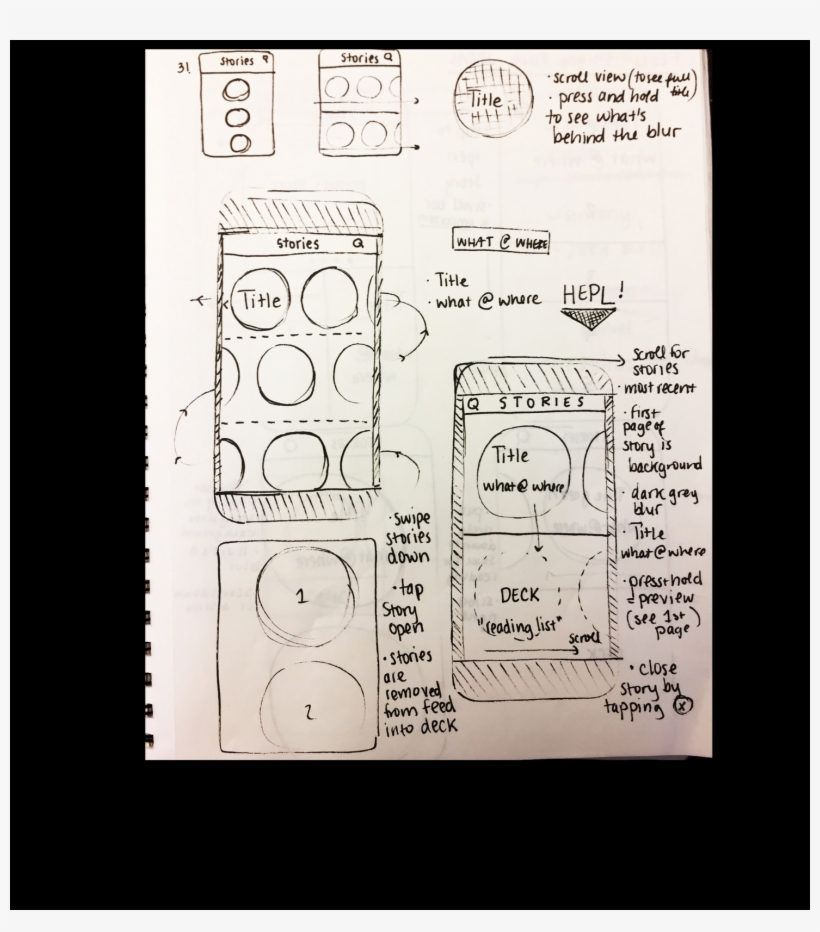 31.
Stories Q
Stories Q
Title
· scroll view (to see full title)
· press and hold
to see what's
behind the blur
Stories Q
Title
WHAT @ WHERE
· Title
· what @ where
HEPL!
Scroll for
stories
· most recent
Q STORIES
· first
page of
story is
background
Title
what @ where
· dark grey
blur
· Title
what @ where
· swipe
stories
down
DECK
"reading list"
scroll
· press + hold
= preview
(see 1st
page)
1
· tap
story
open
· stories
are
removed
from feed
into deck
2
· close
story by
tapping x